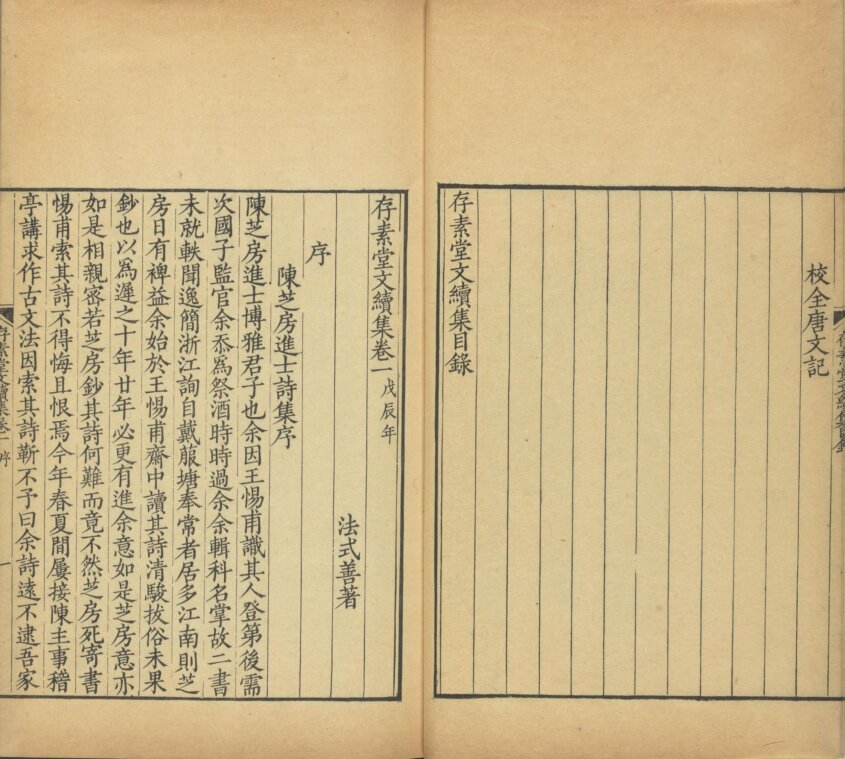 校全唐文記
存素堂文續集目錄
存素堂文續集卷一戊辰年
法式善著
序
陳芝房進士詩集序
陳芝房進士博雅君子也余因王惕甫識其人登第後需
次國子監官余忝為祭酒時時過余余輯科名掌故二書
未就軼聞逸簡浙江詢自戴菔塘奉常者居多江南則芝
房日有裨益余始於王惕甫齋中讀其詩清駿拔俗未果
鈔也以為遲之十年廿年必更有進余意如是芝房意亦
如是相親密若芝房鈔其詩何難而竟不然芝房死寄書
惕甫索其詩不得悔且恨焉今年春夏間屢接陳主事稽
亭講求作古文法因索其詩靳不予曰余詩遠不逮吾家
存素堂文續集卷一 序
一